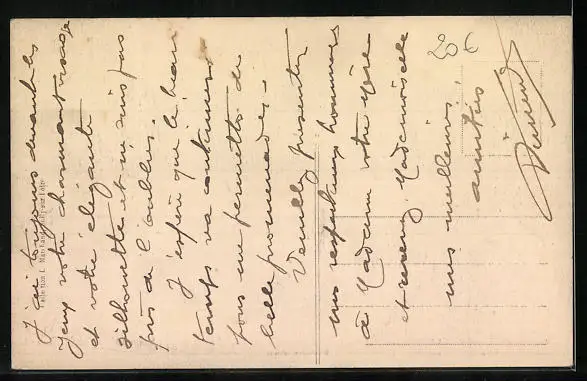 J'ai toujours devant les
yeux votre charmant visage
et votre élégante
silhouette et ne suis pas
près de l'oublier.
J'espère que le beau
temps va continuer
pour me permettre de
belles promenades.
Veuillez présenter
mes respectueux hommages
à Madame votre Mère
et recevez Mademoiselle
mes meilleures
amitiés
20 €